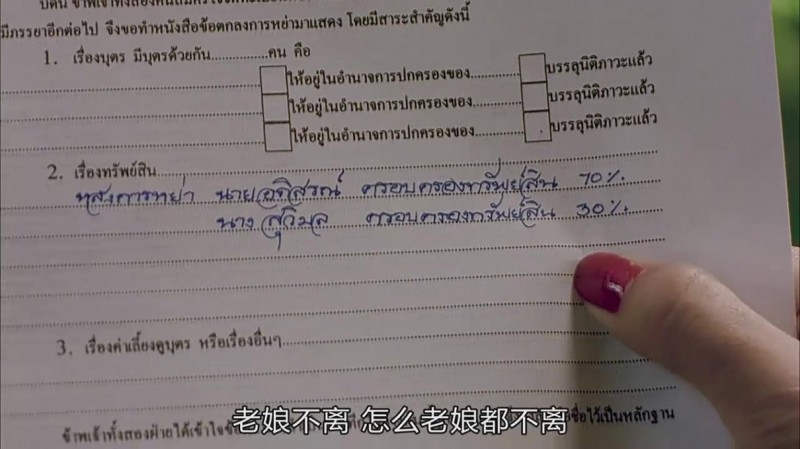 มีภรรยาอีกต่อไป จึงขอทำหนังสือข้อตกลงการหย่ามาแสดง โดยมีสาระสำคัญดังนี้
1. เรื่องบุตร มีบุตรด้วยกัน............คน คือ
ให้อยู่ในอำนาจการปกครองของ............ บรรลุนิติภาวะแล้ว
ให้อยู่ในอำนาจการปกครองของ............ บรรลุนิติภาวะแล้ว
ให้อยู่ในอำนาจการปกครองของ............ บรรลุนิติภาวะแล้ว
2. เรื่องทรัพย์สิน
หลังการหย่า นายอดิสรณ์ ครอบครองทรัพย์สิน 70%
นางสุวิมล ครอบครองทรัพย์สิน 30%
3. เรื่องค่าเลี้ยงดูบุตร หรือเรื่องอื่นๆ
ข้าพเจ้าทั้งสองฝ่ายได้เข้าใจ ไว้เป็นหลักฐาน
老娘不离 怎么老娘都不离